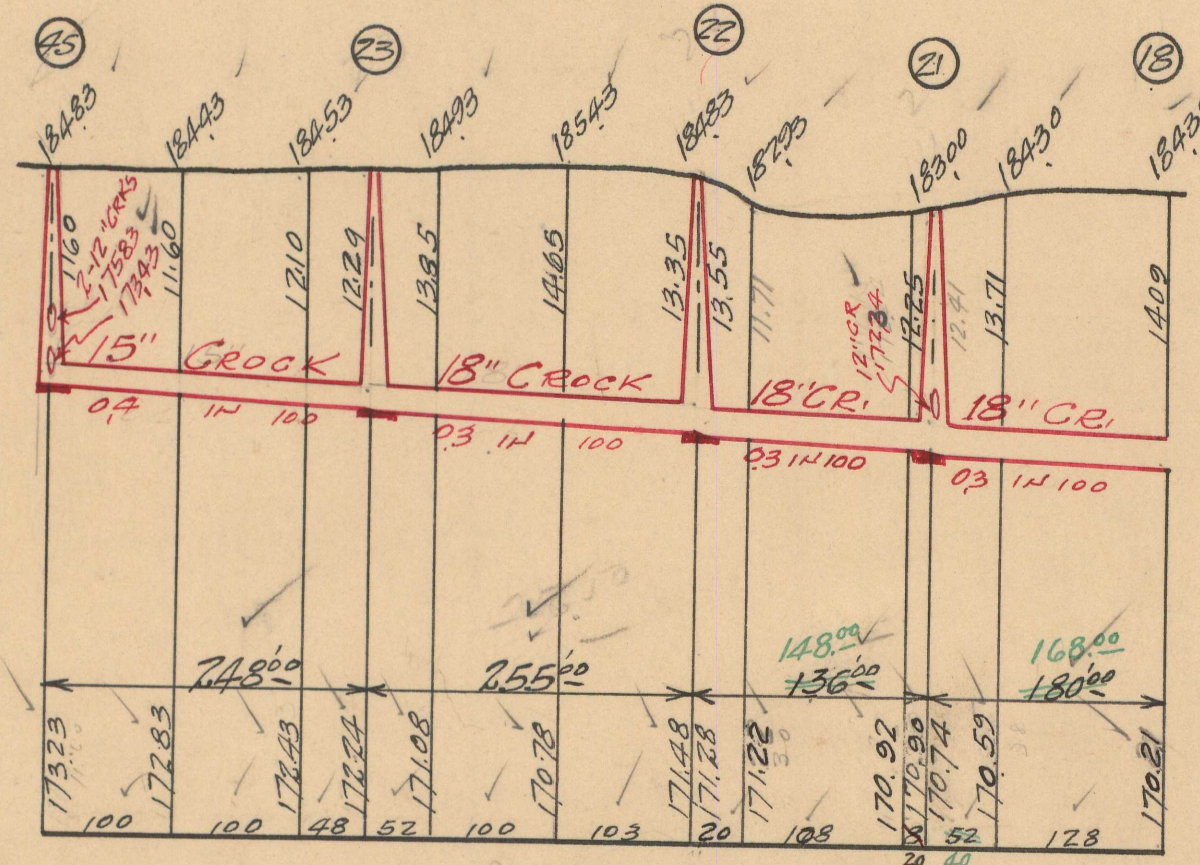 45 23 22 21 18
184.83 184.43 184.53 184.93 185.43 184.83 182.93 183.00 184.30
11.60 11.60 12.10 12.29 13.85 14.65 13.35 13.55 11.71 12.25 12.41 13.71 14.09
2-12" CRKS
175.83
173.43
12" CR
172.34
15" CROCK 18" CROCK 18" CR. 18" CR.
0.4 IN 100 0.3 IN 100 0.3 IN 100 0.3 IN 100
148.00 168.00
248.00 255.00 136.00 180.00
173.23 172.83 172.43 172.24 171.08 170.78 171.48 171.28 171.22 170.92 170.90 170.74 170.59 170.21
100 100 48 52 100 103 20 108 8 52 128
20 40